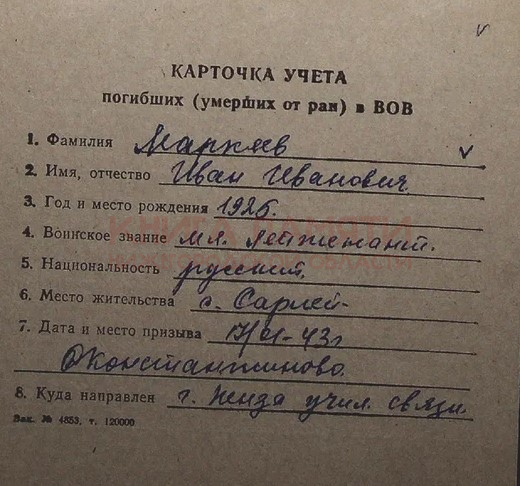 КАРТОЧКА УЧЕТА
погибших (умерших от ран) в ВОВ
1. Фамилия Маркеев
2. Имя, отчество Иван Иванович.
3. Год и место рождения 1925.
4. Воинское звание мл. лейтенант.
5. Национальность русский.
6. Место жительства с. Сарлей
7. Дата и место призыва 17/ -43г
Д Константиново.
8. Куда направлен г. Пенза учил. связи.
Зак. № 4853, т. 120000
КНИГА ПАМЯТИ
НИЖЕГОРОДСКОЙ ОБЛАСТИ